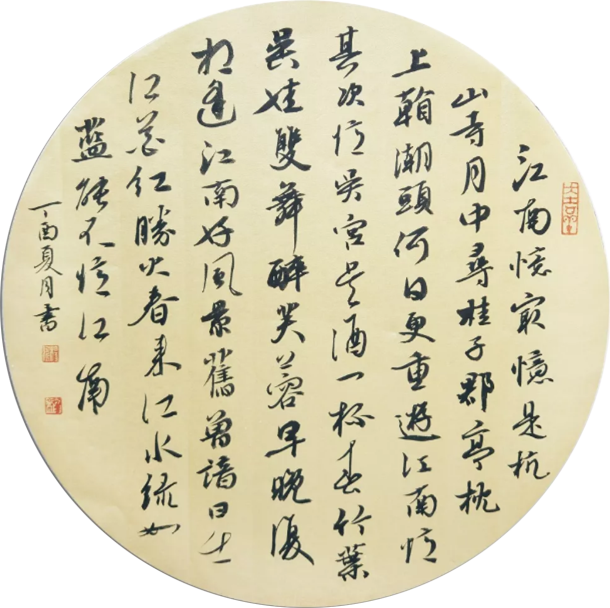 江南憶最憶是杭
山寺月中尋桂子郡亭枕
上看潮頭何日更重遊江南憶
其次憶吳宮吳酒一杯春竹葉
吳娃雙舞醉芙蓉早晚復
相逢江南好風景舊曾諳日出
江花紅勝火春來江水綠如
藍能不憶江南
丁酉夏月書